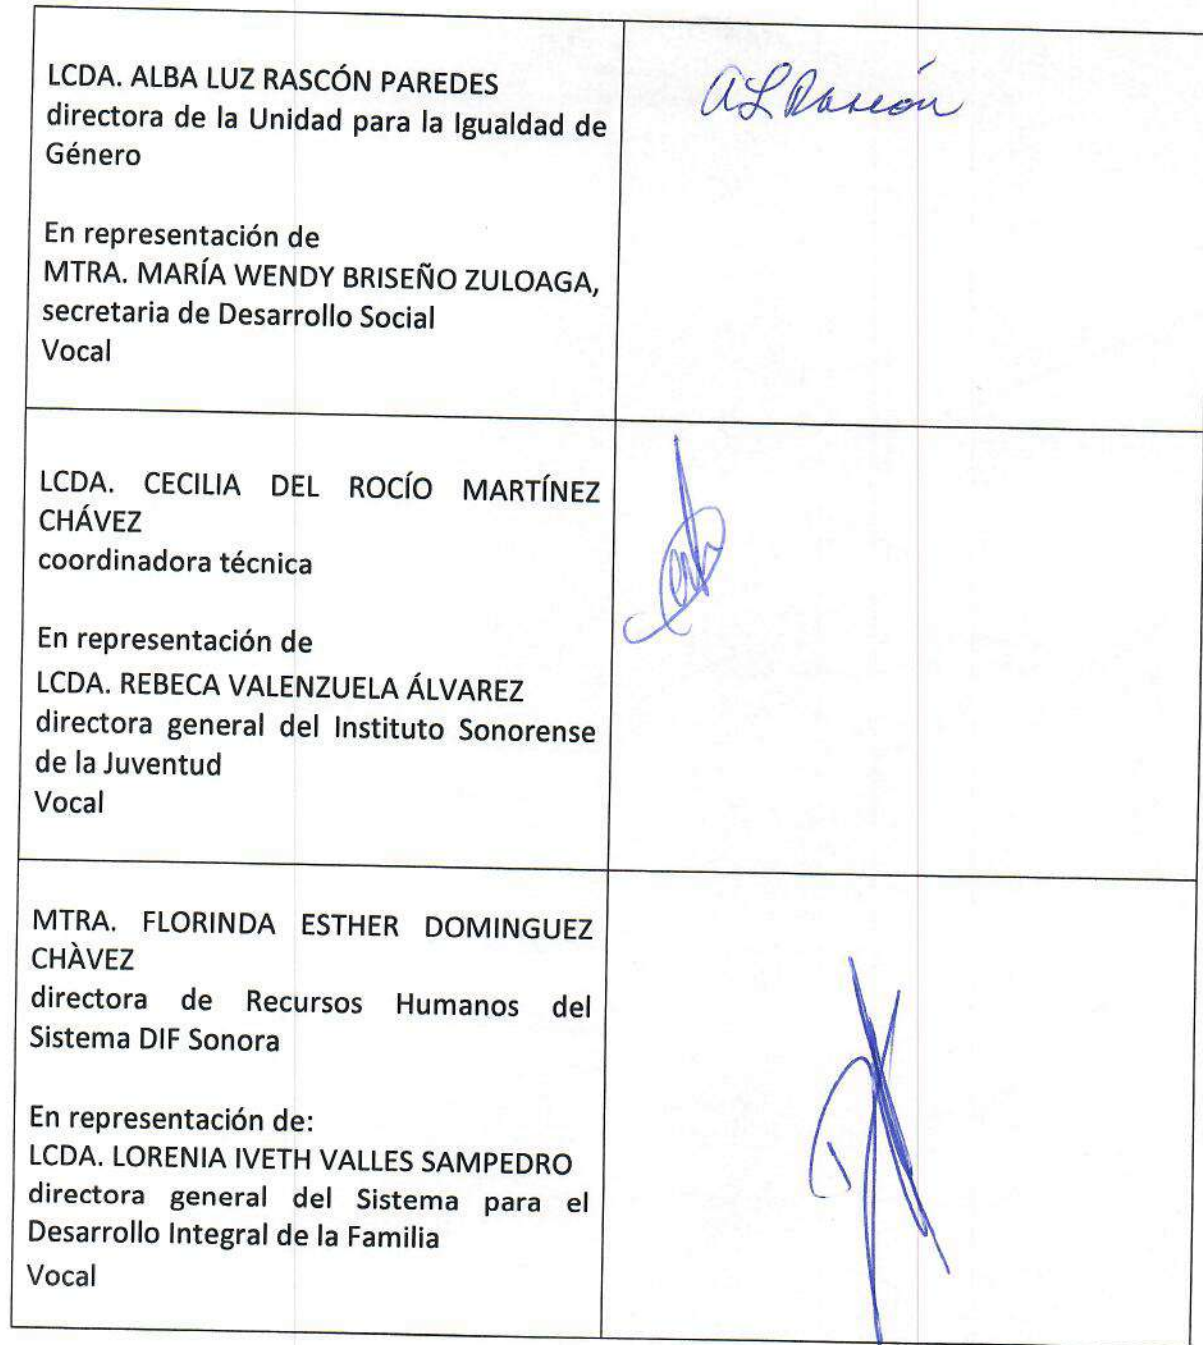 LCDA. ALBA LUZ RASCÓN PAREDES
directora de la Unidad para la Igualdad de
Género
AL Rascón
En representación de
MTRA. MARÍA WENDY BRISEÑO ZULOAGA,
secretaria de Desarrollo Social
Vocal
LCDA. CECILIA DEL ROCÍO MARTÍNEZ
CHÁVEZ
coordinadora técnica
En representación de
LCDA. REBECA VALENZUELA ÁLVAREZ
directora general del Instituto Sonorense
de la Juventud
Vocal
MTRA. FLORINDA ESTHER DOMINGUEZ
CHÀVEZ
directora de Recursos Humanos del
Sistema DIF Sonora
En representación de:
LCDA. LORENIA IVETH VALLES SAMPEDRO
directora general del Sistema para el
Desarrollo Integral de la Familia
Vocal